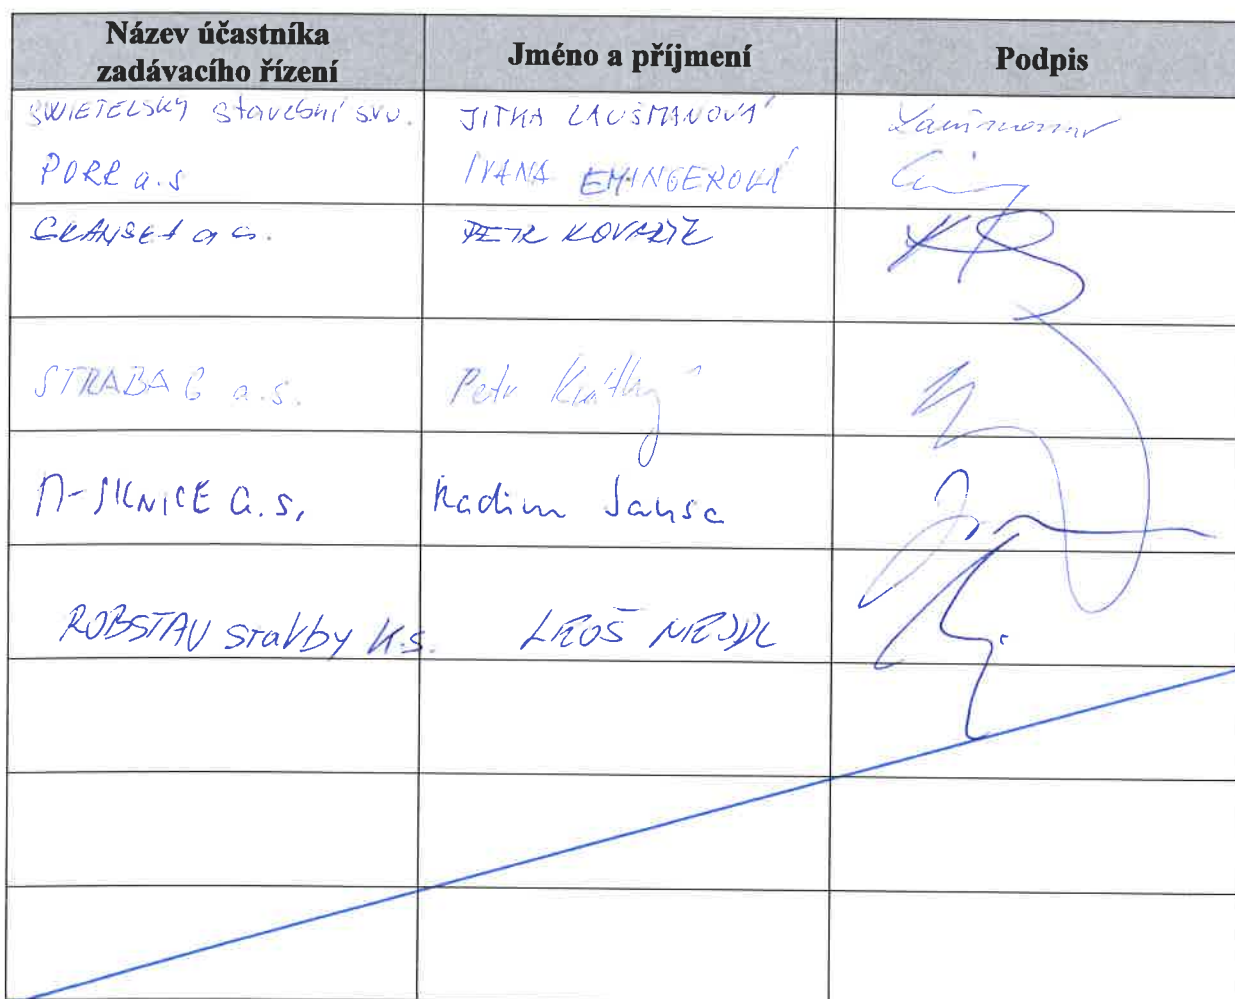 Název účastníka
zadávacího řízení
Jméno a příjmení
Podpis
SWIETELSKY stavební s.r.o.
JITKA LAUŠMANOVÁ
PORR a.s
IVANA EMINGEROVÁ
a.s.
PETR KOVAŘÍK
STRABAG a.s.
Petr Krátký
M-SILNICE a.s.
Radim Jansa
ROBSTAV stavby k.s.
LEOŠ NEJDL